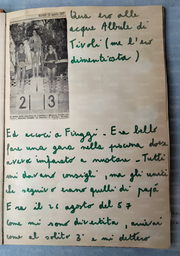 Qua ero alle
acque Albule di
Tivoli (me l'ero
dimenticata)
2
3
Ed eccoci a Fiuggi. E' bello
fare una gara nella piscina dove
avevo imparato a nuotare. Tutti
mi davano consigli, ma gli unici
che seguivo erano quelli di papà
E' ra il 26 agosto del 57
Come mi sono divertita, arrivai
come al solito 3ª e mi dettero